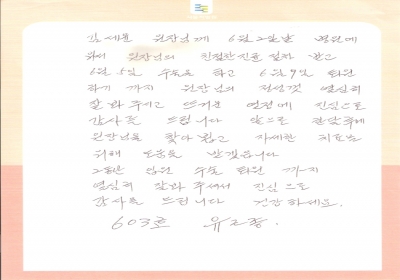 김세훈 원장님께 6월 2일날 병원에
와서 원장님의 친절한 진료 절차 받고
6월 5일 수술을 하고 6월 9일 퇴원
하기 까지 원장님의 정성껏 열심히
잘 봐주시고 뜨거운 열정에 진심으로
감사를 드립니다 앞으로 관절후에
원장님을 찾아 뵙고 자세한 치료를
위해 도움을 받겠습니다
그동안 입원 수술 퇴원 까지
열심히 잘 봐 주셔서 진심으로
감사를 드립니다 건강하세요.
603호